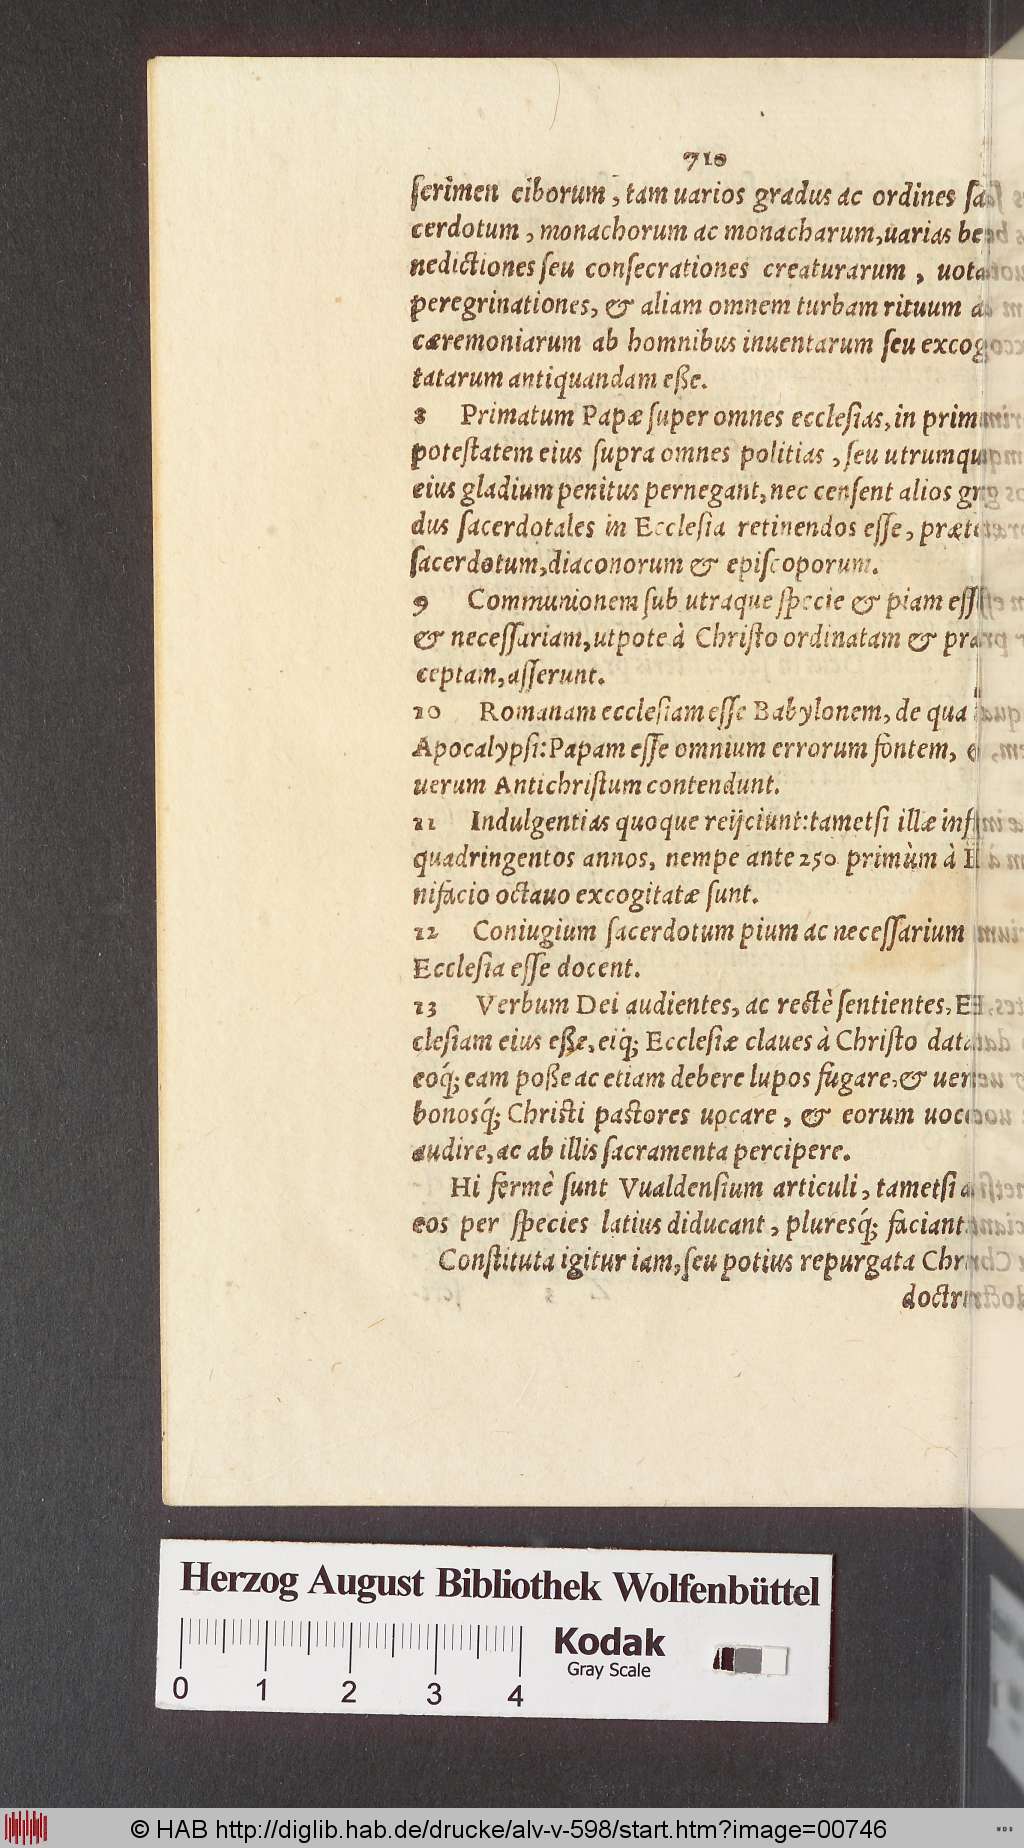 710
ſerimen ciborum, tam uarios gradus ac ordines ſa
cerdotum, monachorum ac monacharum, uarias be
nedictiones ſeu conſecrationes creaturarum, uota
peregrinationes, & aliam omnem turbam rituum a
cæremoniarum ab homnibus inuentarum ſeu excog
tatarum antiquandam eße.
8 Primatum Papæ ſuper omnes eccleſias, in prim
poteſtatem eius ſupra omnes politias, ſeu utrumqu
eius gladium penitus pernegant, nec cenſent alios gr
dus ſacerdotales in Eccleſia retinendos eſſe, præte
ſacerdotum, diaconorum & epiſcoporum.
9 Communionem ſub utraque ſpecie & piam eſſ
& neceſſariam, utpote à Chriſto ordinatam & præ
ceptam, aſſerunt.
10 Romanam eccleſiam eſſe Babylonem, de qua
Apocalypſi: Papam eſſe omnium errorum fontem, &
uerum Antichriſtum contendunt.
11 Indulgentias quoque reijciunt: tametſi illæ inf
quadringentos annos, nempe ante 250 primùm à B
nifacio octauo excogitatæ ſunt.
12 Coniugium ſacerdotum pium ac neceſſarium
Eccleſia eſſe docent.
13 Verbum Dei audientes, ac rectè ſentientes, E
cleſiam eius eße, eiq́; Eccleſiæ claues à Chriſto data
eoq́; eam poße ac etiam debere lupos fugare, & uer
bonosq́; Chriſti paſtores uocare, & eorum uoce
audire, ac ab illis ſacramenta percipere.
Hi fermè ſunt Vualdenſium articuli, tametſi a
eos per ſpecies latius diducant, pluresq́; faciant.
Conſtituta igitur iam, ſeu potius repurgata Chr
doctri
Herzog August Bibliothek Wolfenbüttel
Kodak
Gray Scale
0 1 2 3 4
© HAB http://diglib.hab.de/drucke/alv-v-598/start.htm?image=00746